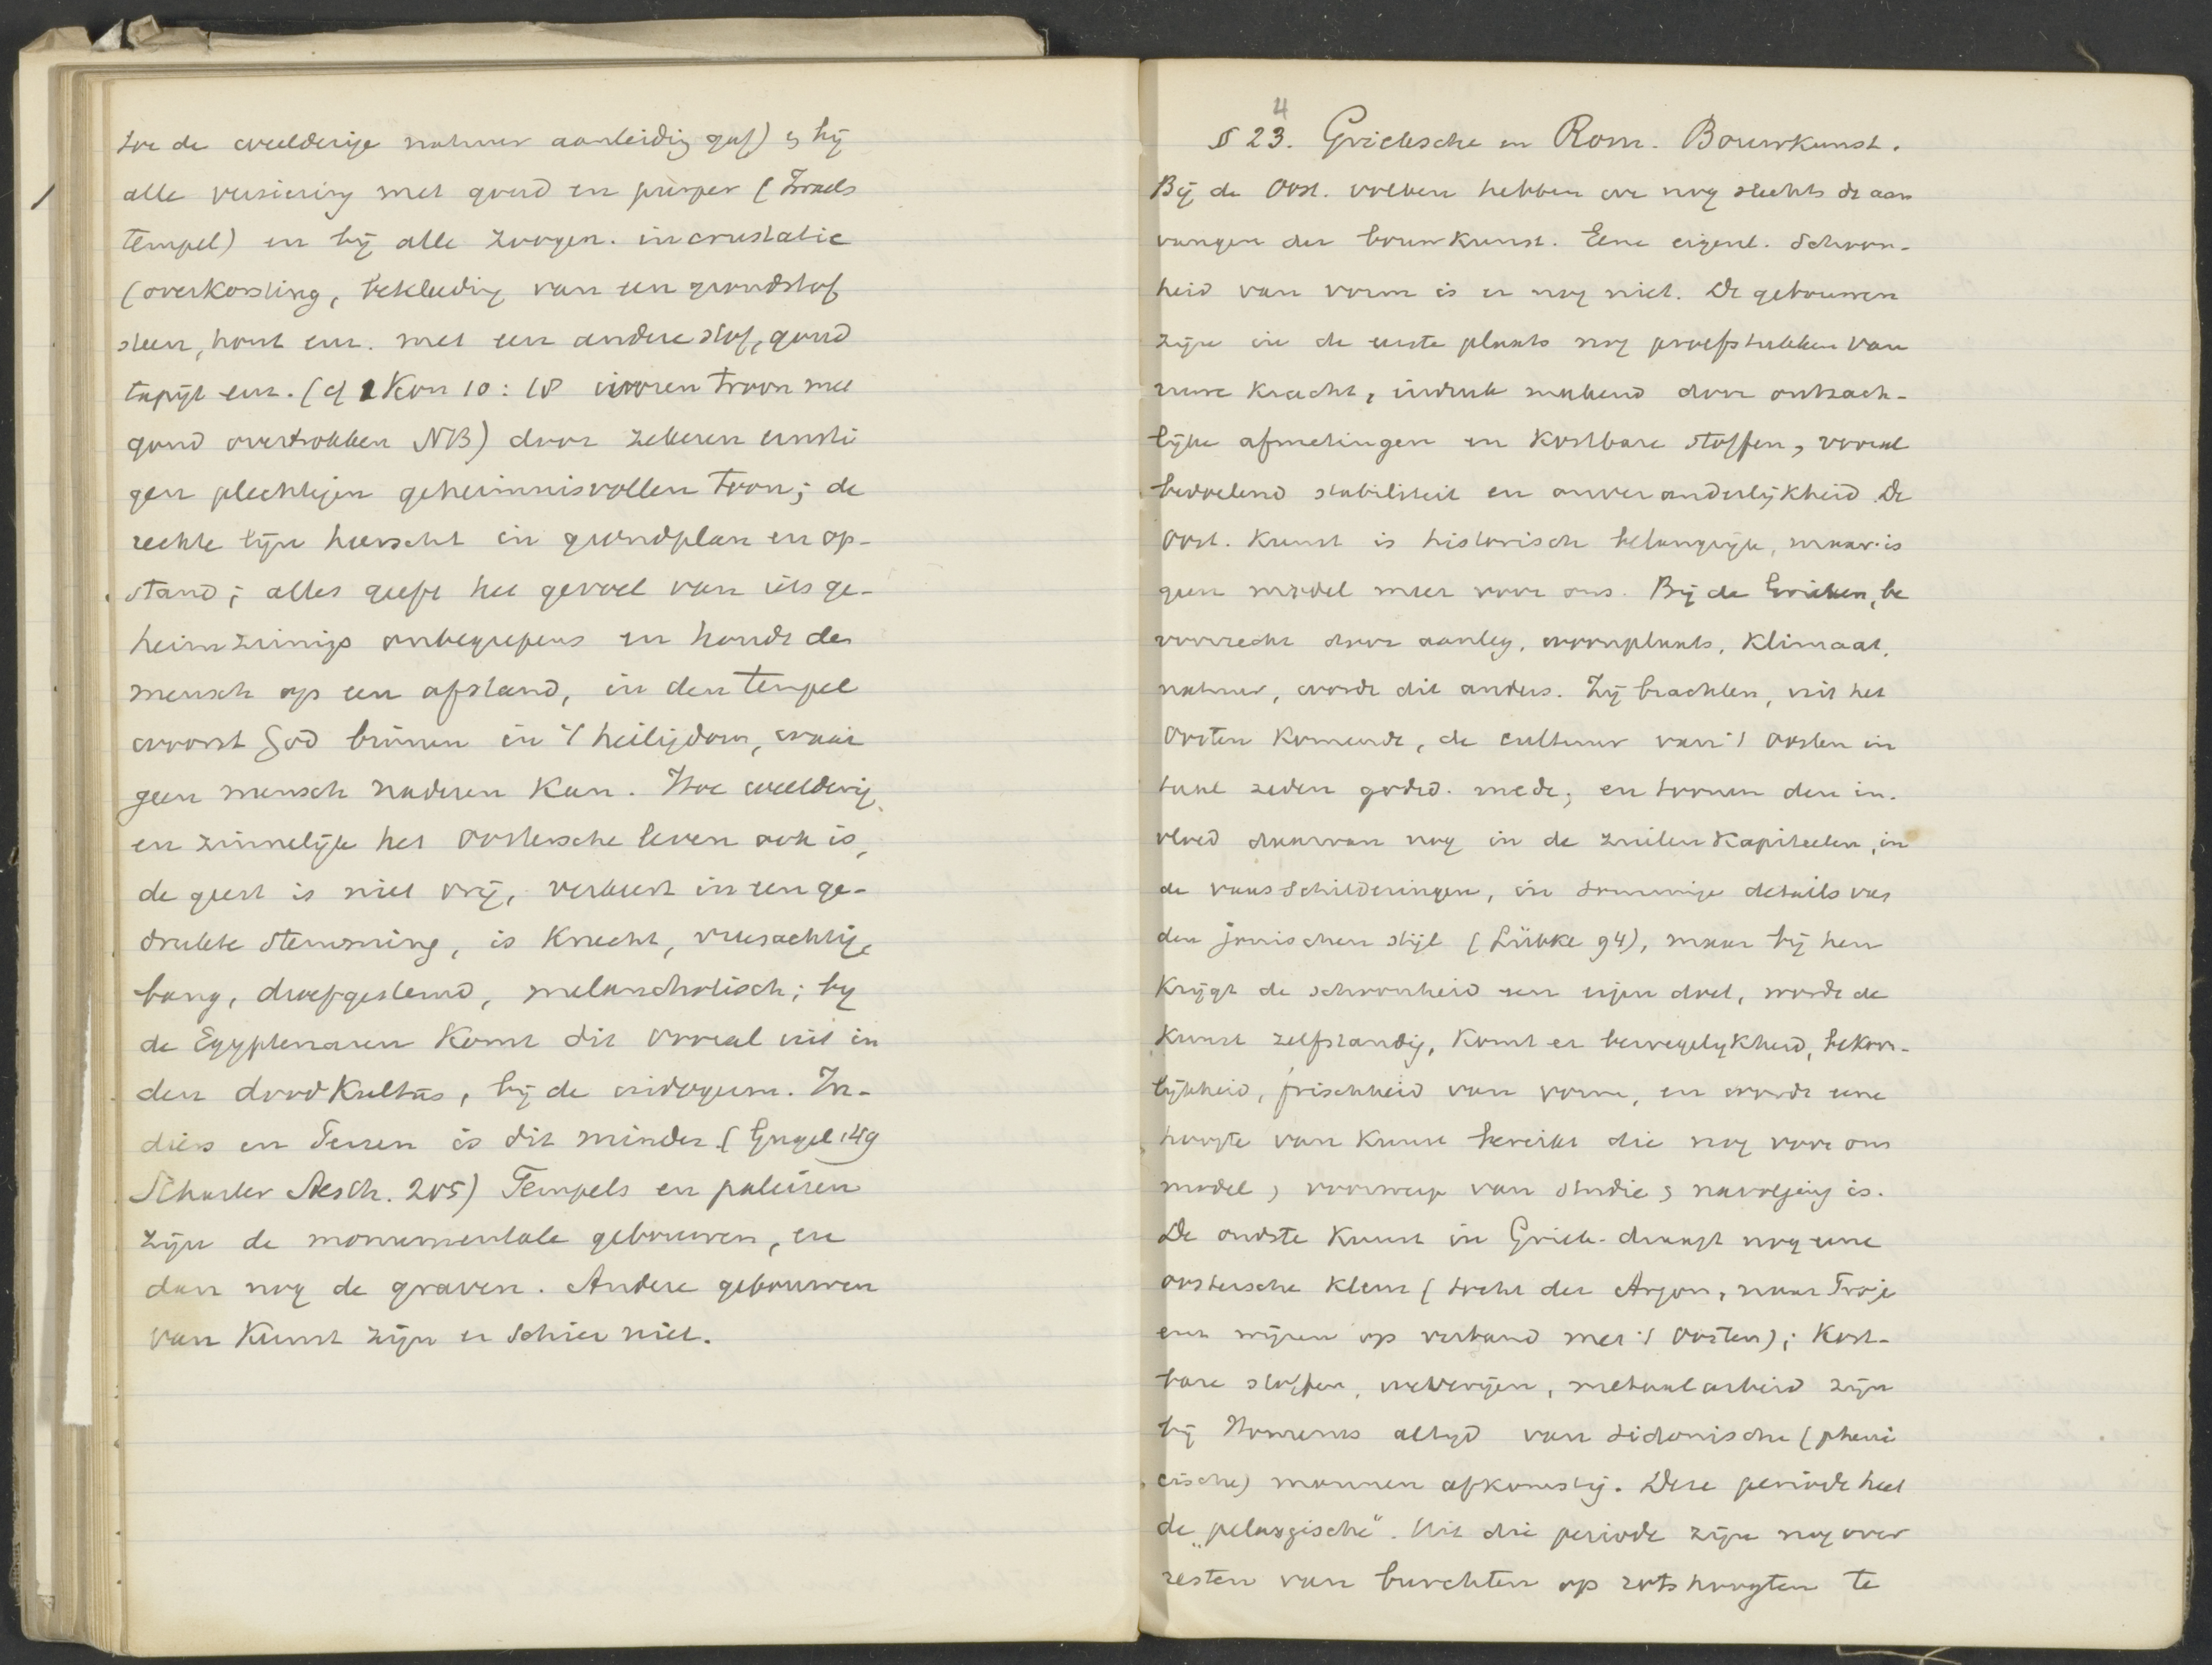 toe de weelderige natuur aanleiding gaf) & bij
alle versiering met goud en purper (Israels
tempel) en bij alle zoogen. incrustatie
(overkorsting, bekleeding van een grondstof
steen, hout enz. met een andere stof, goud
tapijt enz. (cf 1 Kon 10:18 ivoren troon met
goud overtrokken NB) door zekeren ernsti
gen plechtigen geheimnisvollen toon; de
rechte lijn heerscht in grondplan en op-
stand; alles geeft het gevoel van iets ge-
heimzinnigs onbegrepens en houdt den
mensch op een afstand, in den tempel
woont God binnen in 't heiligdom, waar
geen mensch naderen kan. Hoe weelderig
en zinnelijk het Oostersche leven ook is,
de geest is niet vrij, verkeert in een ge-
drukte stemming, is knecht, vreesachtig,
bang, droefgestemd, melancholisch; bij
de Egyptenaren komt dit vooral uit in
den doodkultus, bij de
diërs en Perzen is dit minder (Gugel 149
Aesth. 205) Tempels en paleizen
zijn de monumentale gebouwen, en
dan nog de graven. Andere gebouwen
van Kunst zijn er schier niet.
§ 23. 4 Grieksche en Rom. Bouwkunst.
Bij de Oost. volken hebben we nog slechts de aan
vangen der bouwkunst. Eene eigenl. schoon-
heid van vorm is er nog niet. De gebouwen
zijn in de eerste plaats nog proefstukken van
ruwe kracht, indruk makend door ontzach-
lijke afmetingen en kostbare stoffen, vooral
bedoelend stabiliteit en onveranderlijkheid. De
Oost. Kunst is historisch belangrijk, maar is
geen model meer voor ons. Bij de Grieken, be
voorrecht door aanleg, woonplaats, klimaat,
natuur, wordt dit anders. Zij brachten, uit het
Oosten komende, de cultuur van 't Oosten in
taal zeden godsd. mede; en toonen den in-
vloed daarvan nog in de zuilen kapiteelen, in
de vaasschilderingen, in sommige details van
den jonischen stijl (Lübke 94), maar bij hen
krijgt de schoonheid een eigen doel, wordt de
kunst zelfstandig, komt er bewegelijkheid, bekoor-
lijkheid, frischheid van vorm, en wordt eene
hoogte van kunst bereikt die nog voor ons
model, voorwerp van studie & navolging is.
De oudste kunst in Griek. draagt nog eene
oostersche kleur (tocht der Argon., naar Troje
enz wijzen op verband met 't Oosten); kost-
bare stoffen, weverijen, metaalarbeid zijn
bij Homerus altijd van sidonische (pheni
cische) mannen afkomstig. Deze periode heet
de „pelasgische". Uit die periode zijn nog over
resten van burchten op rotshoogten te